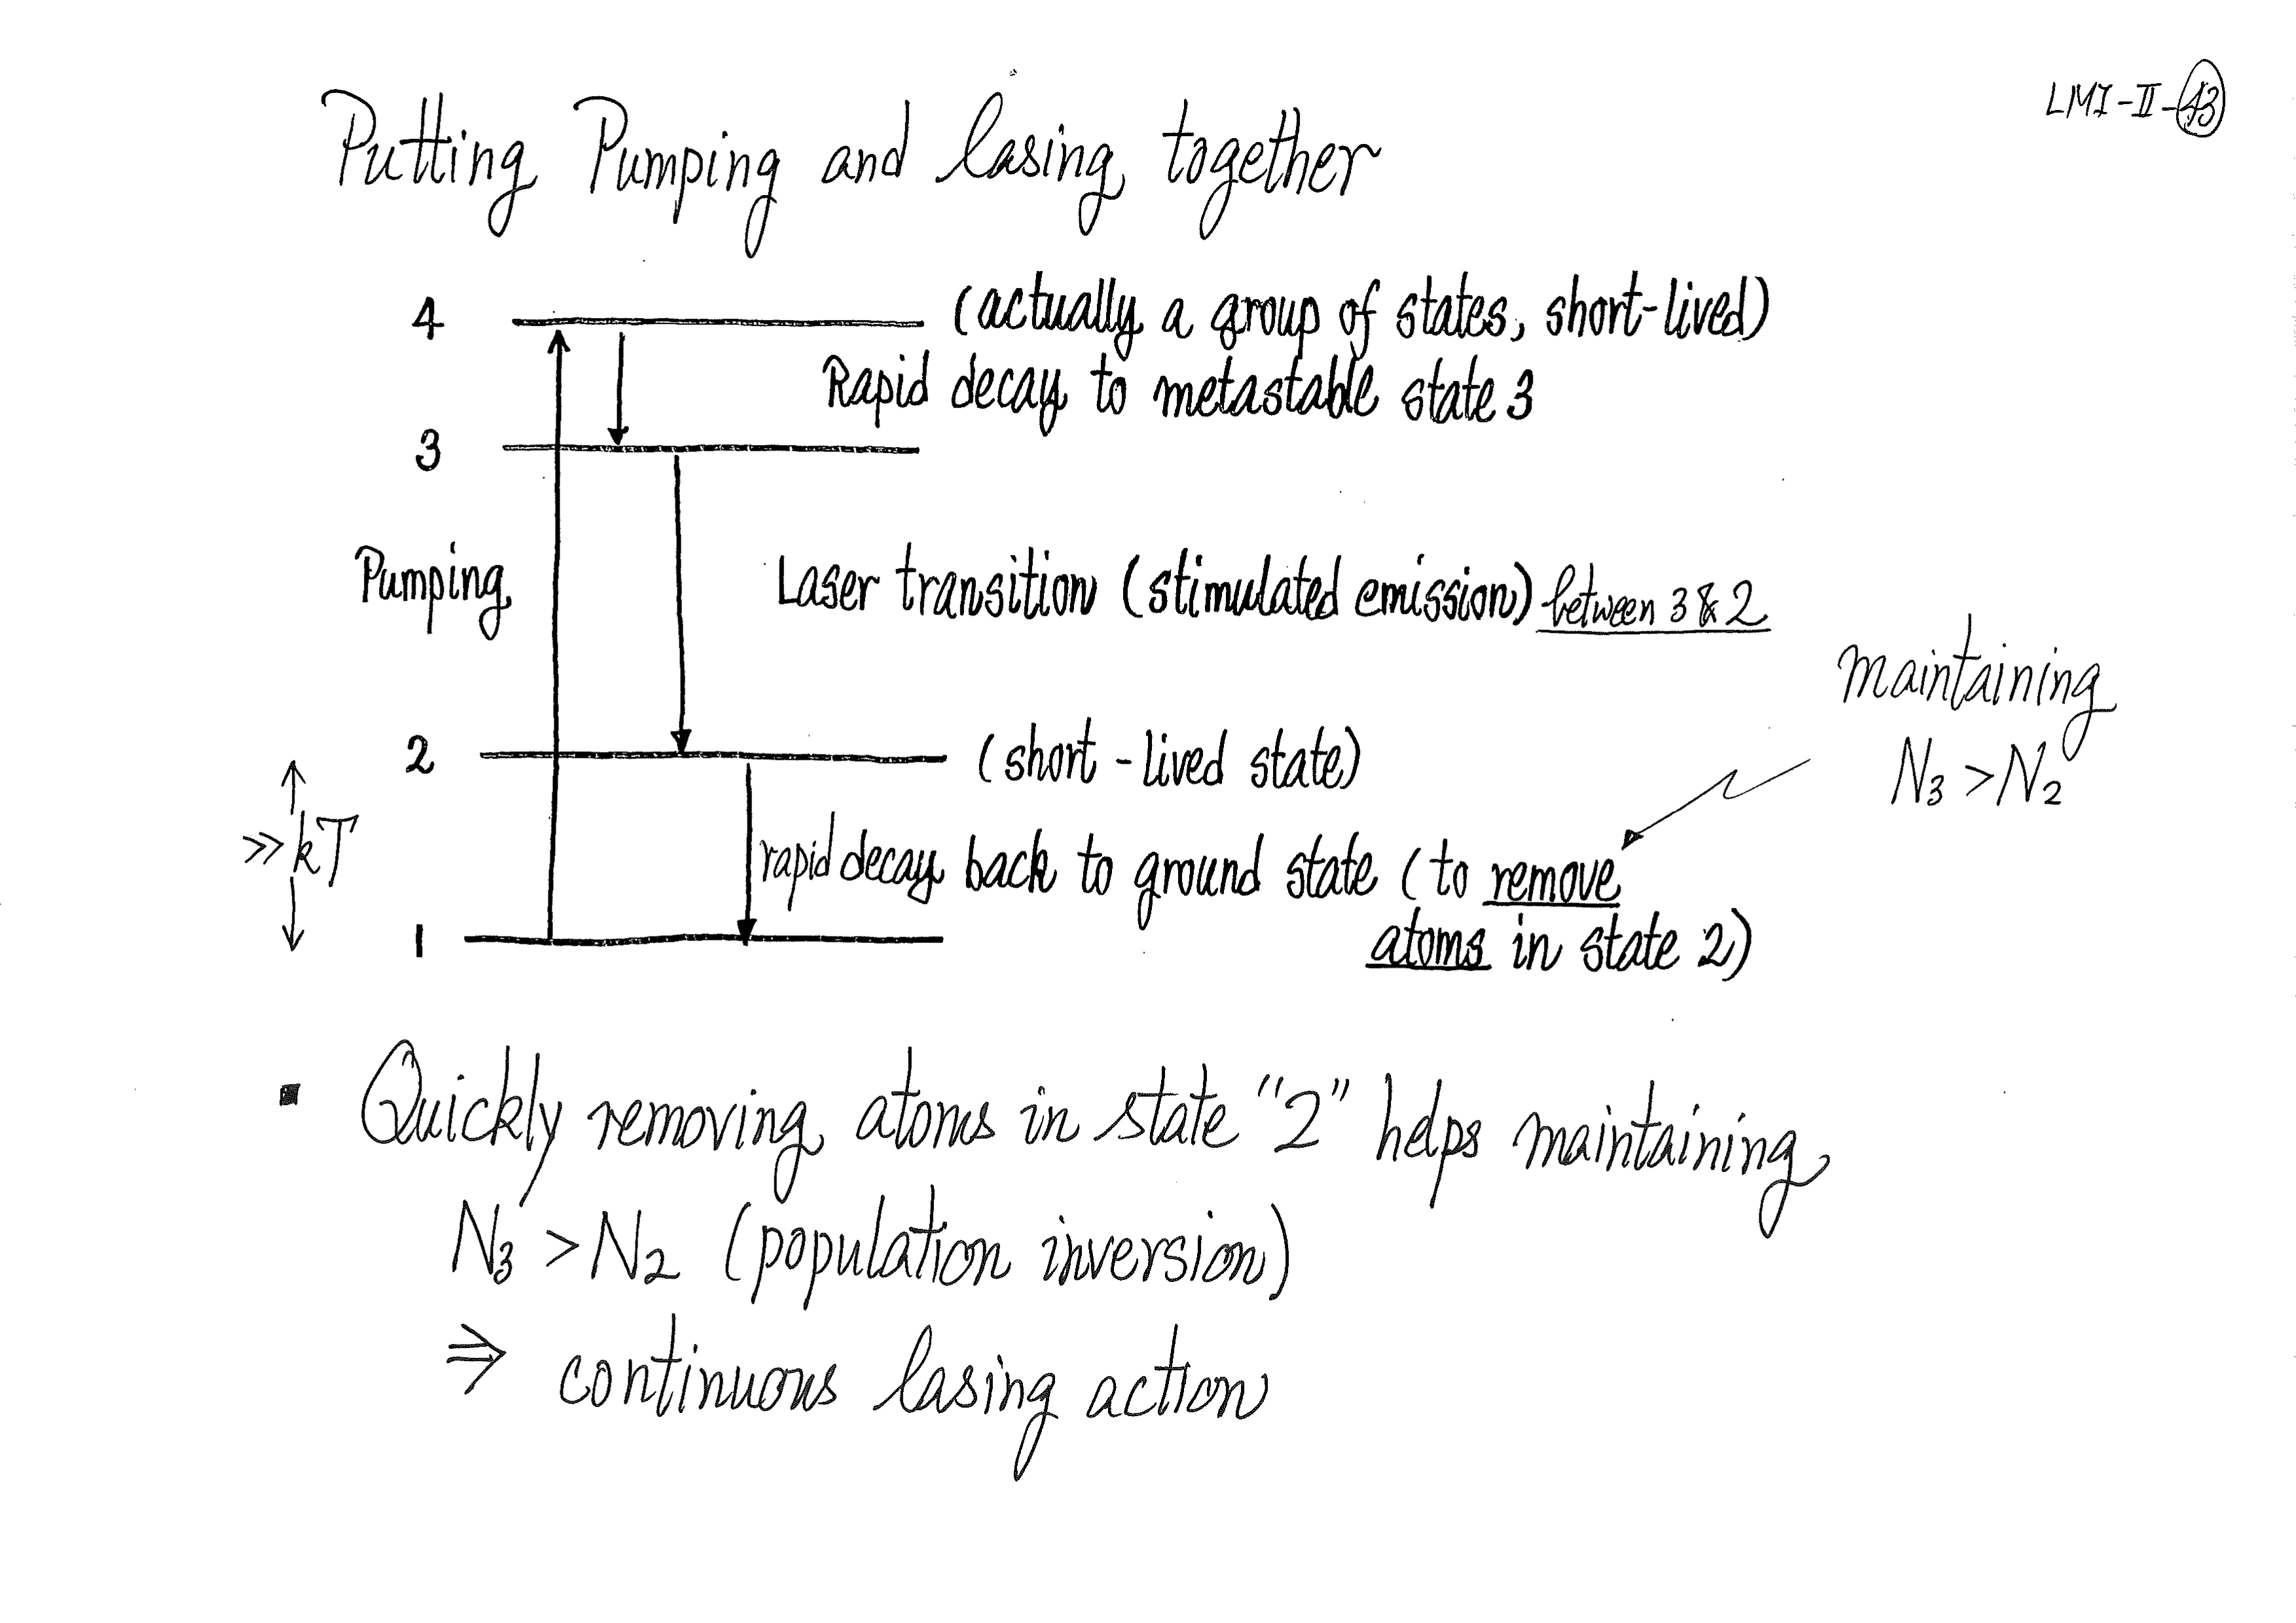 LMI-II-43
Putting Pumping and lasing together
4 (actually a group of states, short-lived)
Rapid decay to metastable state 3
3
Pumping Laser transition (stimulated emission) between 3 & 2
maintaining
N3 > N2
2 (short-lived state)
>> kT
rapid decay back to ground state (to remove
atoms in state 2)
1
▪ Quickly removing atoms in state "2" helps maintaining
N3 > N2 (population inversion)
⇒ continuous lasing action